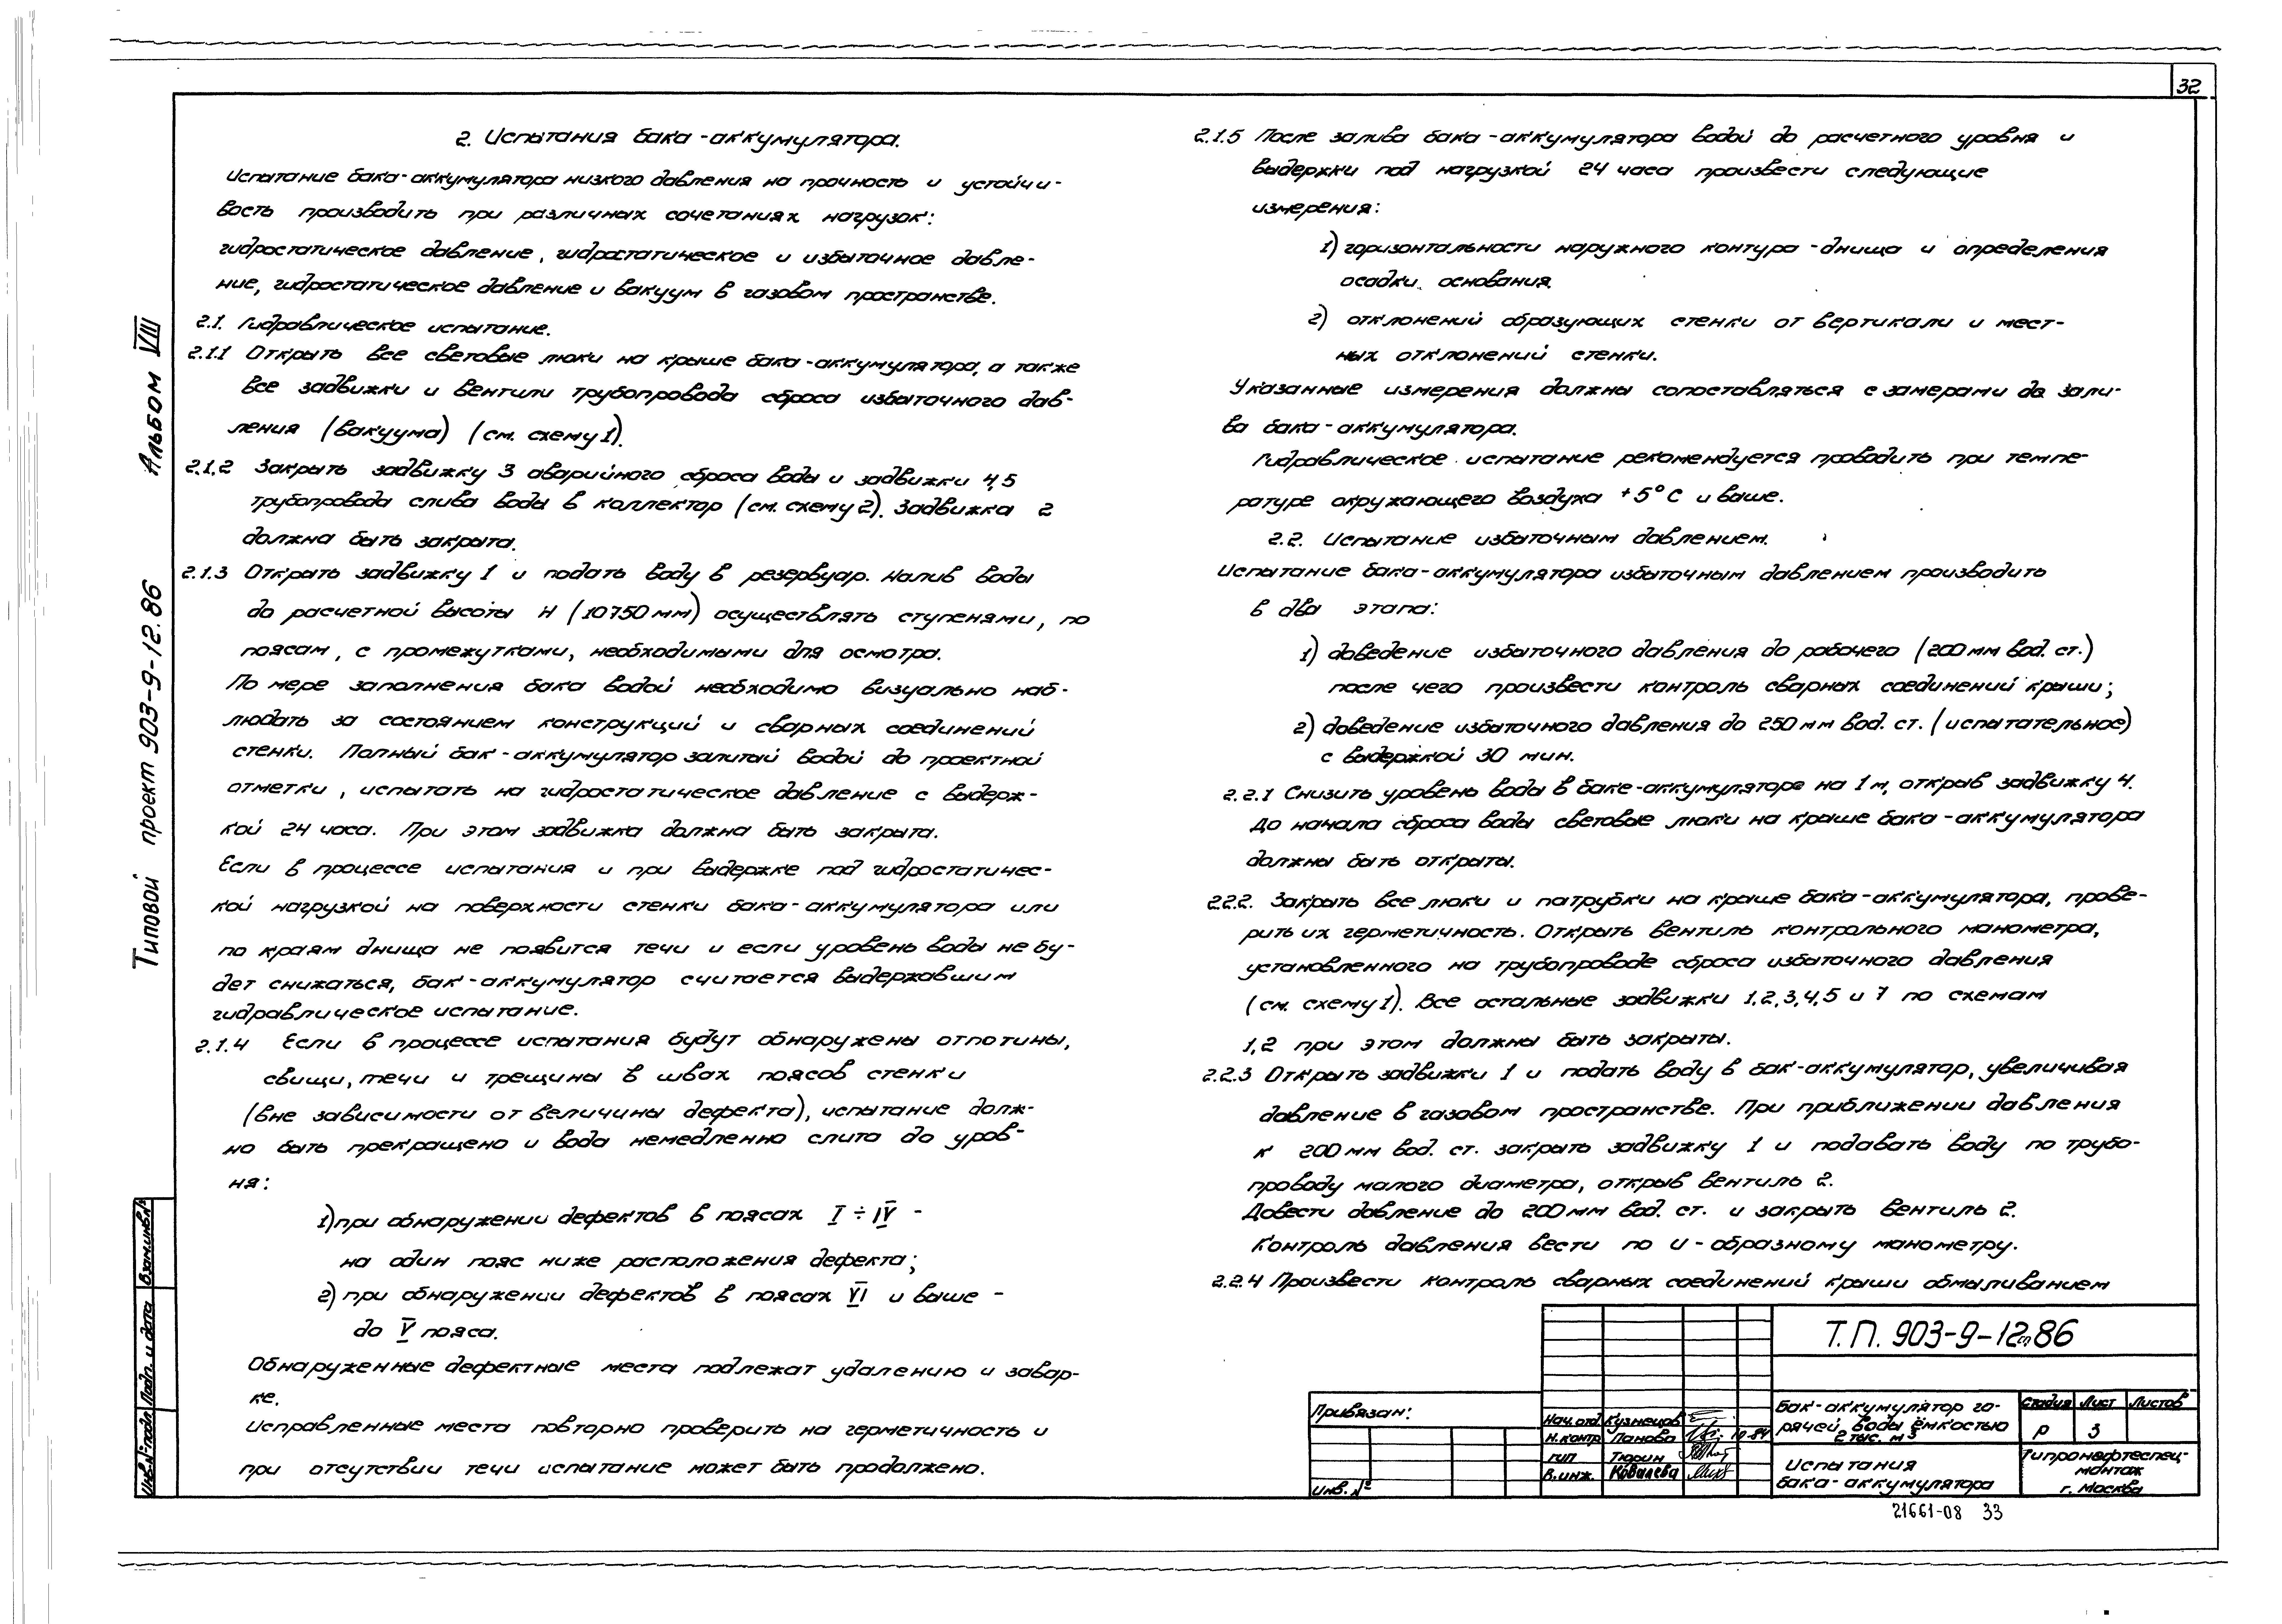 32
2. Испытания бака-аккумулятора.
Испытание бака-аккумулятора низкого давления на прочность и устойчи-
вость производить при различных сочетаниях нагрузок:
гидростатическое давление, гидростатическое и избыточное давле-
ние, гидростатическое давление и вакуум в газовом пространстве.
2.1. Гидравлическое испытание.
2.1.1 Открыть все световые люки на крыше бака-аккумулятора, а также
все задвижки и вентили трубопровода сброса избыточного дав-
ления (вакуума) (см. схему 1).
2.1.2 Закрыть задвижку 3 аварийного сброса воды и задвижки 4,5
трубопровода слива воды в коллектор (см. схему 2). Задвижка 2
должна быть закрыта.
2.1.3 Открыть задвижку 1 и подать воду в резервуар. Налив воды
до расчетной высоты H (10750 мм) осуществлять ступенями, по
поясам, с промежутками, необходимыми для осмотра.
По мере заполнения бака водой необходимо визуально наб-
людать за состоянием конструкций и сварных соединений
стенки. Полный бак-аккумулятор залитый водой до проектной
отметки, испытать на гидростатическое давление с выдерж-
кой 24 часа. При этом задвижка должна быть закрыта.
Если в процессе испытания и при выдержке под гидростатичес-
кой нагрузкой на поверхности стенки бака-аккумулятора или
по краям днища не появится течи и если уровень воды не бу-
дет снижаться, бак-аккумулятор считается выдержавшим
гидравлическое испытание.
2.1.4 Если в процессе испытания будут обнаружены отпотины,
свищи, течи и трещины в швах поясов стенки
(вне зависимости от величины дефекта), испытание долж-
но быть прекращено и вода немедленно слита до уров-
ня:
1) при обнаружении дефектов в поясах I ÷ IV -
на один пояс ниже расположения дефекта;
2) при обнаружении дефектов в поясах VI и выше -
до V пояса.
Обнаруженные дефектные места подлежат удалению и завар-
ке.
Исправленные места повторно проверить на герметичность и
при отсутствии течи испытание может быть продолжено.
2.1.5 После залива бака-аккумулятора водой до расчетного уровня и
выдержки под нагрузкой 24 часа произвести следующие
измерения:
1) горизонтальности наружного контура-днища и определения
осадки основания.
2) отклонений образующих стенки от вертикали и мест-
ных отклонений стенки.
Указанные измерения должны сопоставляться с замерами до зали-
ва бака-аккумулятора.
Гидравлическое испытание рекомендуется проводить при темпе-
ратуре окружающего воздуха +5°С и выше.
2.2. Испытание избыточным давлением.
Испытание бака-аккумулятора избыточным давлением производить
в два этапа:
1) доведение избыточного давления до рабочего (200 мм вод. ст.)
после чего произвести контроль сварных соединений крыши;
2) доведение избыточного давления до 250 мм вод. ст. (испытательное)
с выдержкой 30 мин.
2.2.1 Снизить уровень воды в баке-аккумуляторе на 1 м, открыв задвижку 4.
До начала сброса воды световые люки на крыше бака-аккумулятора
должны быть открыты.
2.2.2. Закрыть все люки и патрубки на крыше бака-аккумулятора, прове-
рить их герметичность. Открыть вентиль контрольного манометра,
установленного на трубопроводе сброса избыточного давления
(см. схему 1). Все остальные задвижки 1,2,3,4,5 и 7 по схемам
1,2 при этом должны быть закрыты.
2.2.3 Открыть задвижки 1 и подать воду в бак-аккумулятор, увеличивая
давление в газовом пространстве. При приближении давления
к 200 мм вод. ст. закрыть задвижку 1 и подавать воду по трубо-
проводу малого диаметра, открыв вентиль 2.
Довести давление до 200 мм вод. ст. и закрыть вентиль 2.
Контроль давления вести по U-образному манометру.
2.2.4 Произвести контроль сварных соединений крыши обмыливанием
Типовой проект 903-9-12.86 Альбом VIII
Инв. № подл. Подп. и дата Взам. инв. №
Привязан:
Инв. №
Нач. отд. Кузнецов
Н. контр. Панова
ГИП Тюрин
В. инж. Ковалева
Т.П. 903-9-12сп86
Бак-аккумулятор го-
рячей воды ёмкостью
2 тыс. м³
Стадия Лист Листов
Р 3
Испытания
бака-аккумулятора
Гипронефтеспец-
монтаж
г. Москва
21661-08 33